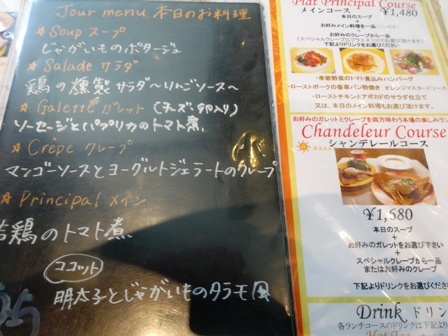 Jour menu 本日のお料理
☆ Soup スープ
じゃがいものポタージュ
☆ Salade サラダ
鶏の燻製サラダ〜りんごソース〜
☆ Galette ガレット (チーズ、卵入り)
ソーセージとパプリカのトマト煮
☆ Crêpe クレープ
マンゴーソースとヨーグルトジェラートのクレープ
☆ Principal メイン
若鶏のトマト煮
ココット
明太子とじゃがいものタラモ風
Plat Principal Course
メインコース
¥1,480
本日のスープ
+
お好みのメイン料理を一品
+
お好みのクレープから一品
下記よりドリンクをお選び下さい
・季節野菜のトマト煮込みハンバーグ
・ローストポークの香草パン粉焼き オレンジマスタードソース
・ローストチキンとアボカドのサラダ仕立て
又は、本日のメイン料理をお選び下さい
お好みのガレットとクレープを両方味わう本場の楽しみラン
Chandeleur Course
シャンデレールコース
¥1,580
本日のスープ
+
お好みのガレットをお選び下さい
+
スペシャルクレープから一品
またはお好みのクレープ
下記よりドリンクをお選び下さい
Drink ドリ
各ランチコースのドリンクを